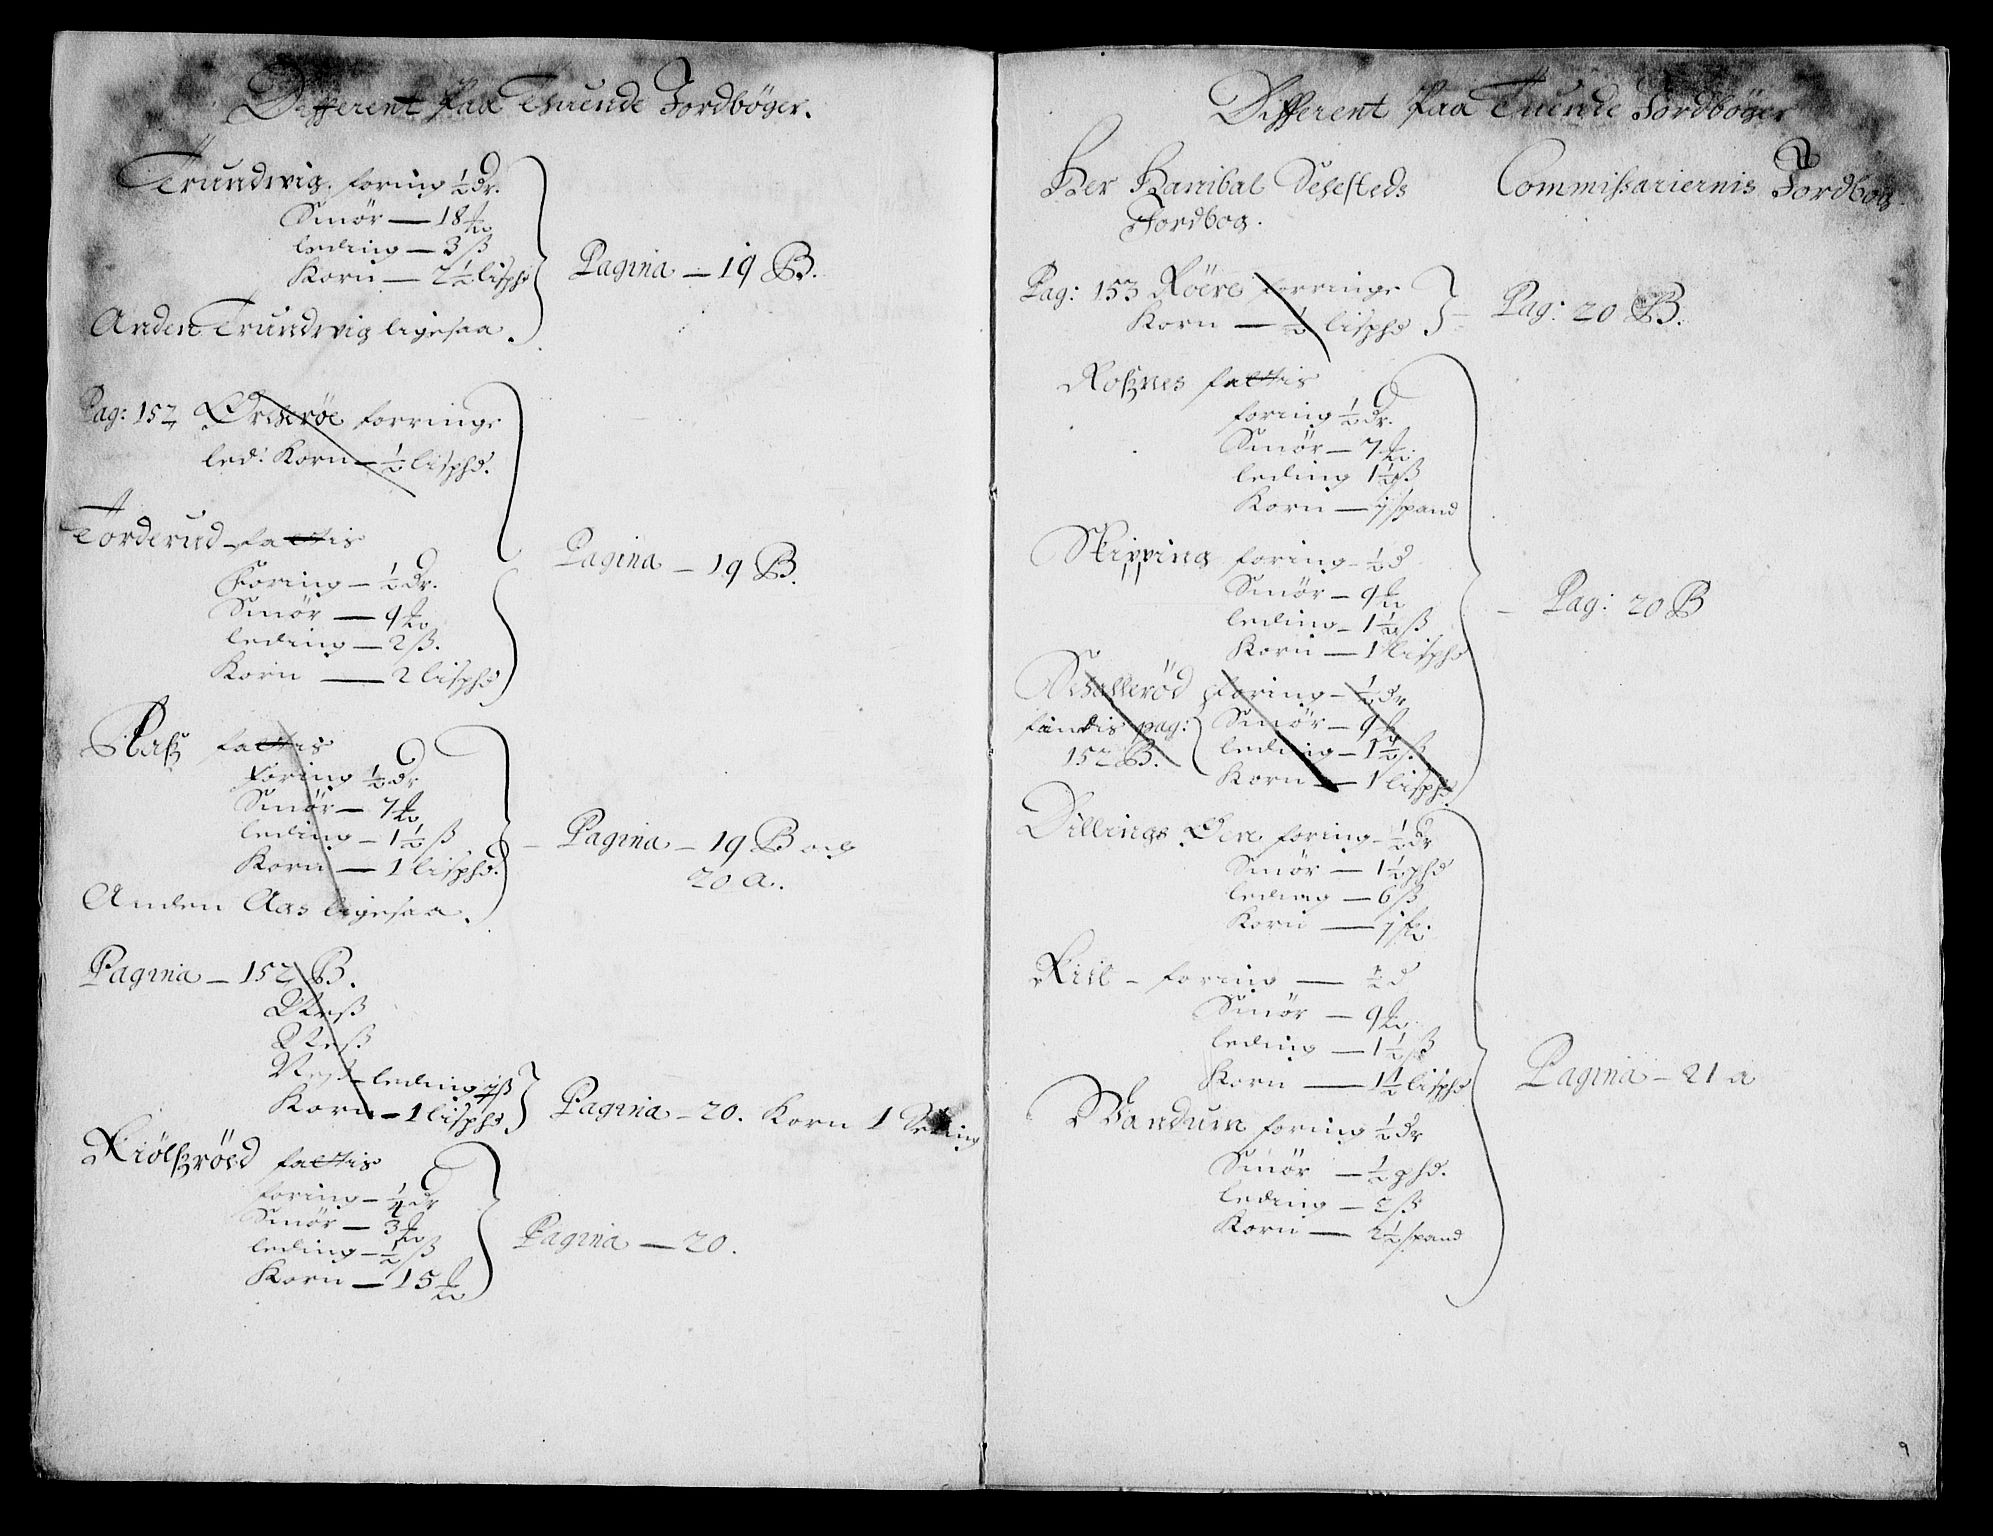 Different Paa Thuende Jordbøger.
Trundwig. foring ½ dr.
Smör — 18 ℔
leding — 3 ß
Korn — 2½ lisphd
Pagina — 19 B.
Anden Trundwig ligesaa.
Pag: 152 forringe
led: Korn — ½ lisphd.
Torderud fattis
Foring — ½ dr.
Smör — 9 ℔
leding — 2 ß.
Korn — 2 lisphd
Pagina — 19 B.
fattis
Foring ½ dr
Smör — 7 ℔
leding — 1½ ß
Korn — 1 lisphd.
Pagina — 19 B och
20 a.
Anden Aas ligesaa.
Pagina — 152 B.
Næß
Næß
leding 1 ß
Korn — 1 lisphd
Pagina — 20. Korn 1
Kiölßröed fattis
foring — ½ dr
Smör — 3 ℔
leding — ½ ß
Korn — 15 ℔
Pagina — 20.
Different Paa Tuende Jordböger
Her Hanibal Sehesteds
Jordbog.
Commissariernis Jordbog.
Pag: 153 Röere forringe
Korn — ½ lisphd
Pag: 20 B.
Roßnes fattis
foring ½ dr.
Smör — 7 ℔
leding 1½ ß
Korn — 1 spand
Skipping foring — ½ d
Smör — 9 ℔
leding — 1½ ß
Korn — 1 lisphd
Pag: 20 B
foring — ½ dr
findis pag: Smör — 9 ℔
152 B. leding — 1½ ß
Korn — 1 lisphd
Dillings Öen foring — ½ dr
Smör — 1½ phd
leding — 6 ß
Korn — 1 sp:
foring — ½ d
Smör — 9 ℔
leding — 1½ ß
Korn — 1½ lisphd
Pagina — 21 a
Wandum foring ½ dr
Smör — ½ phd.
leding — 2 ß
Korn — 2½ spand
9